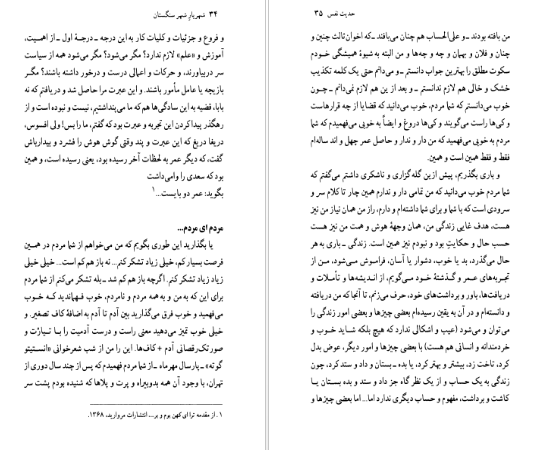 ۳۴ شهریار شهر سنگستان
و فروع و جزئیات و کلیات کار به این درجه ـ درجهٔ اول ـ از اهمیت،
آموزش و «علم» لازم ندارد؟ مگر می‌شود؟ مگر می‌شود همه از سیاست
سر دربیاورند، و حرکات و اعمالی درست و درخور داشته باشند؟ مگر
بازیچه یا عامل مأمور باشند. و این عبرت مرا حاصل شد و دریافتم که نه
بابا، قضیه به این سادگی‌ها هم که ما می‌پنداشتیم، نیست و نبوده است و از
رهگذر پیدا کردن این تجربه و عبرت بود که گفتم، ما را بس! ولی افسوس،
دریغا دریغ که این عبرت و پند وقتی گوش هوش را فشرد و بیدارباش
گفت، که دیگر عمر به لحظات آخر رسیده بود، یعنی رسیده است، و همین
بود که سعدی را وامی‌داشت
بگوید: عمر دو بایست...۱
مردم ای مردم...
یا بگذارید این طوری بگویم که من می‌خواهم از شما مردم در همین
فرصت بسیار کم، خیلی زیاد تشکر کنم... نه باز هم کم است... خیلی خیلی
زیاد زیاد تشکر کنم. اگرچه باز هم کم شد ـ بله تشکر می‌کنم از شما مردم
برای این که به من و به همه مردم و نامردم، خوب فهماندید که خوب
می‌فهمید و خوب فرق می‌گذارید بین آدم تا آدم به اضافهٔ کاف تصغیر. و
خیلی خوب تمیز می‌دهید معنی راست و درست آدمیت را با
صورتک رقصانی آدم + کاف‌ها. این را من از شب شعرخوانی «انستیتو
گوته» ـ پارسال مهرماه ـ از شما مردم فهمیدم که پس از چند سال دوری از
تهران، با وجود آن همه بدوبیراه و پرت و پلاها که شنیده بودم پشت سر
۱. از مقدمه ترا ای کهن بوم و بر... انتشارات مروارید، ۱۳۶۸.
حدیث نفس ۳۵
من یافته بودند ـ و علی‌الحساب هم چنان می‌بافند ـ که اخوان ثالث چنین و
چنان و فلان و بهمان و چه و چه‌ها و من البته به شیوهٔ همیشگی خودم
سکوت مطلق را بهترین جواب دانستم ـ و می‌دانم حتی یک کلمه تکذیب
خشک و خالی هم لازم ندانستم ـ و بعد از ین هم لازم نمی‌دانم ـ چون
خوب می‌دانستم که شما مردم، خوب می‌دانید که قضایا از چه قرارهاست
و کی‌ها راست می‌گویند و کی‌ها دروغ و ایضاً به خوبی می‌فهمیدم که شما
مردم به خوبی می‌فهمید که من دار و ندار و حاصل عمر چهل و اند ساله‌ام
فقط و فقط همین است و همین.
و باری بگذریم، پیش ازین گله‌گزاری و ناشکری داشتم می‌گفتم که
شما مردم خوب می‌دانید که من تمامی دار و ندارم همین چار تا کلام سر و
سرودی است که با شما و برای شما داشته‌ام و دارم، راز من همان نیاز من نیز
هست، هدف غایی زندگی من، همان وجههٔ هوش و همت من نیز هست،
حسب حال و حکایت بود و نبودم نیز همین است. زندگی ـ باری به هر
حال می‌گذرد، بد یا خوب، دشوار یا آسان، فراموش می‌شود، من از
تجربه‌های عمر و گذشتهٔ خود می‌گویم، از اندیشه‌ها و تأملات و
دریافت‌ها، باور و برداشت‌های خود، حرف می‌زنم، تا آنجا که من دریافته
و دانسته‌ام و در آن به یقین رسیده‌ام بعضی چیزها و بعضی امور زندگی را
می‌توان و می‌شود (عیب و اشکالی ندارد که هیچ بلکه شاید خوب و
خردمندانه و انسانی هم هست) با بعضی چیزها و امور دیگر، عوض بدل
کرد، تاخت زد، بیشتر و بهتر کرد، یا بده ـ بستان و داد و ستد کرد، چون
زندگی به یک حساب و از یک نظر گاه جز داد و ستد و بده بستان یا
کاشت و برداشت، مفهوم و حساب دیگری ندارد اما... اما بعضی چیزها و